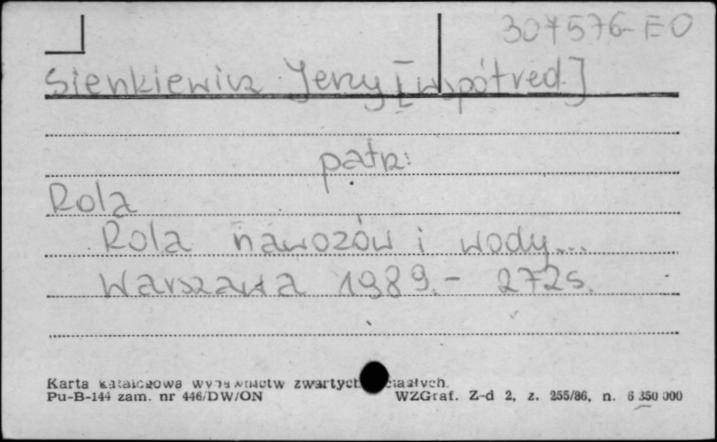 307576-EO
Sienkiewicz Jerzy [współred.]
patrz:
Rola
Rola nawozów i wody...
Warszawa 1989.- 272s.
Karta katalogowa wydawnictw zwartych ciągłych.
Pu-B-144 zam. nr 446/DW/ON WZGraf. Z-d 2, z. 255/86, n. 6 350 000